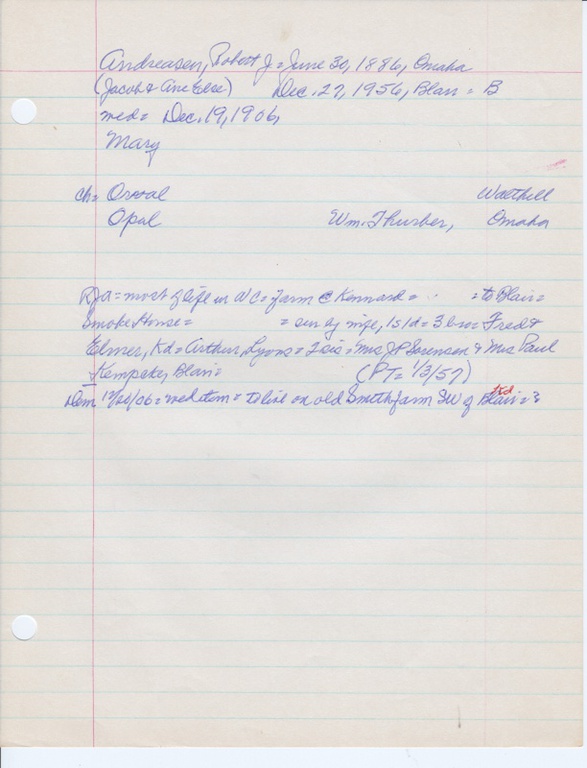 Andreasen, Robert J = June 30, 1886, Omaha
(Jacob & Ane Else) Dec. 27, 1956, Blair = B
wed = Dec. 19, 1906,
Mary
ch = Orval Walthill
Opal Wm. Thurber, Omaha
RJA = most of life in WC = farm @ Kennard = = to Blair =
Smoke House = = surv by wife, 1s 1d = 3 bro = Fred &
Elmer, Kd = Arthur, Lyons = 2 sis = Mrs JP Sorensen & Mrs Paul
Kempcke, Blair = (PT = 1/3/57)
Dem 12/20/06 = wed item = to live on old Smith farm SW of Blair =